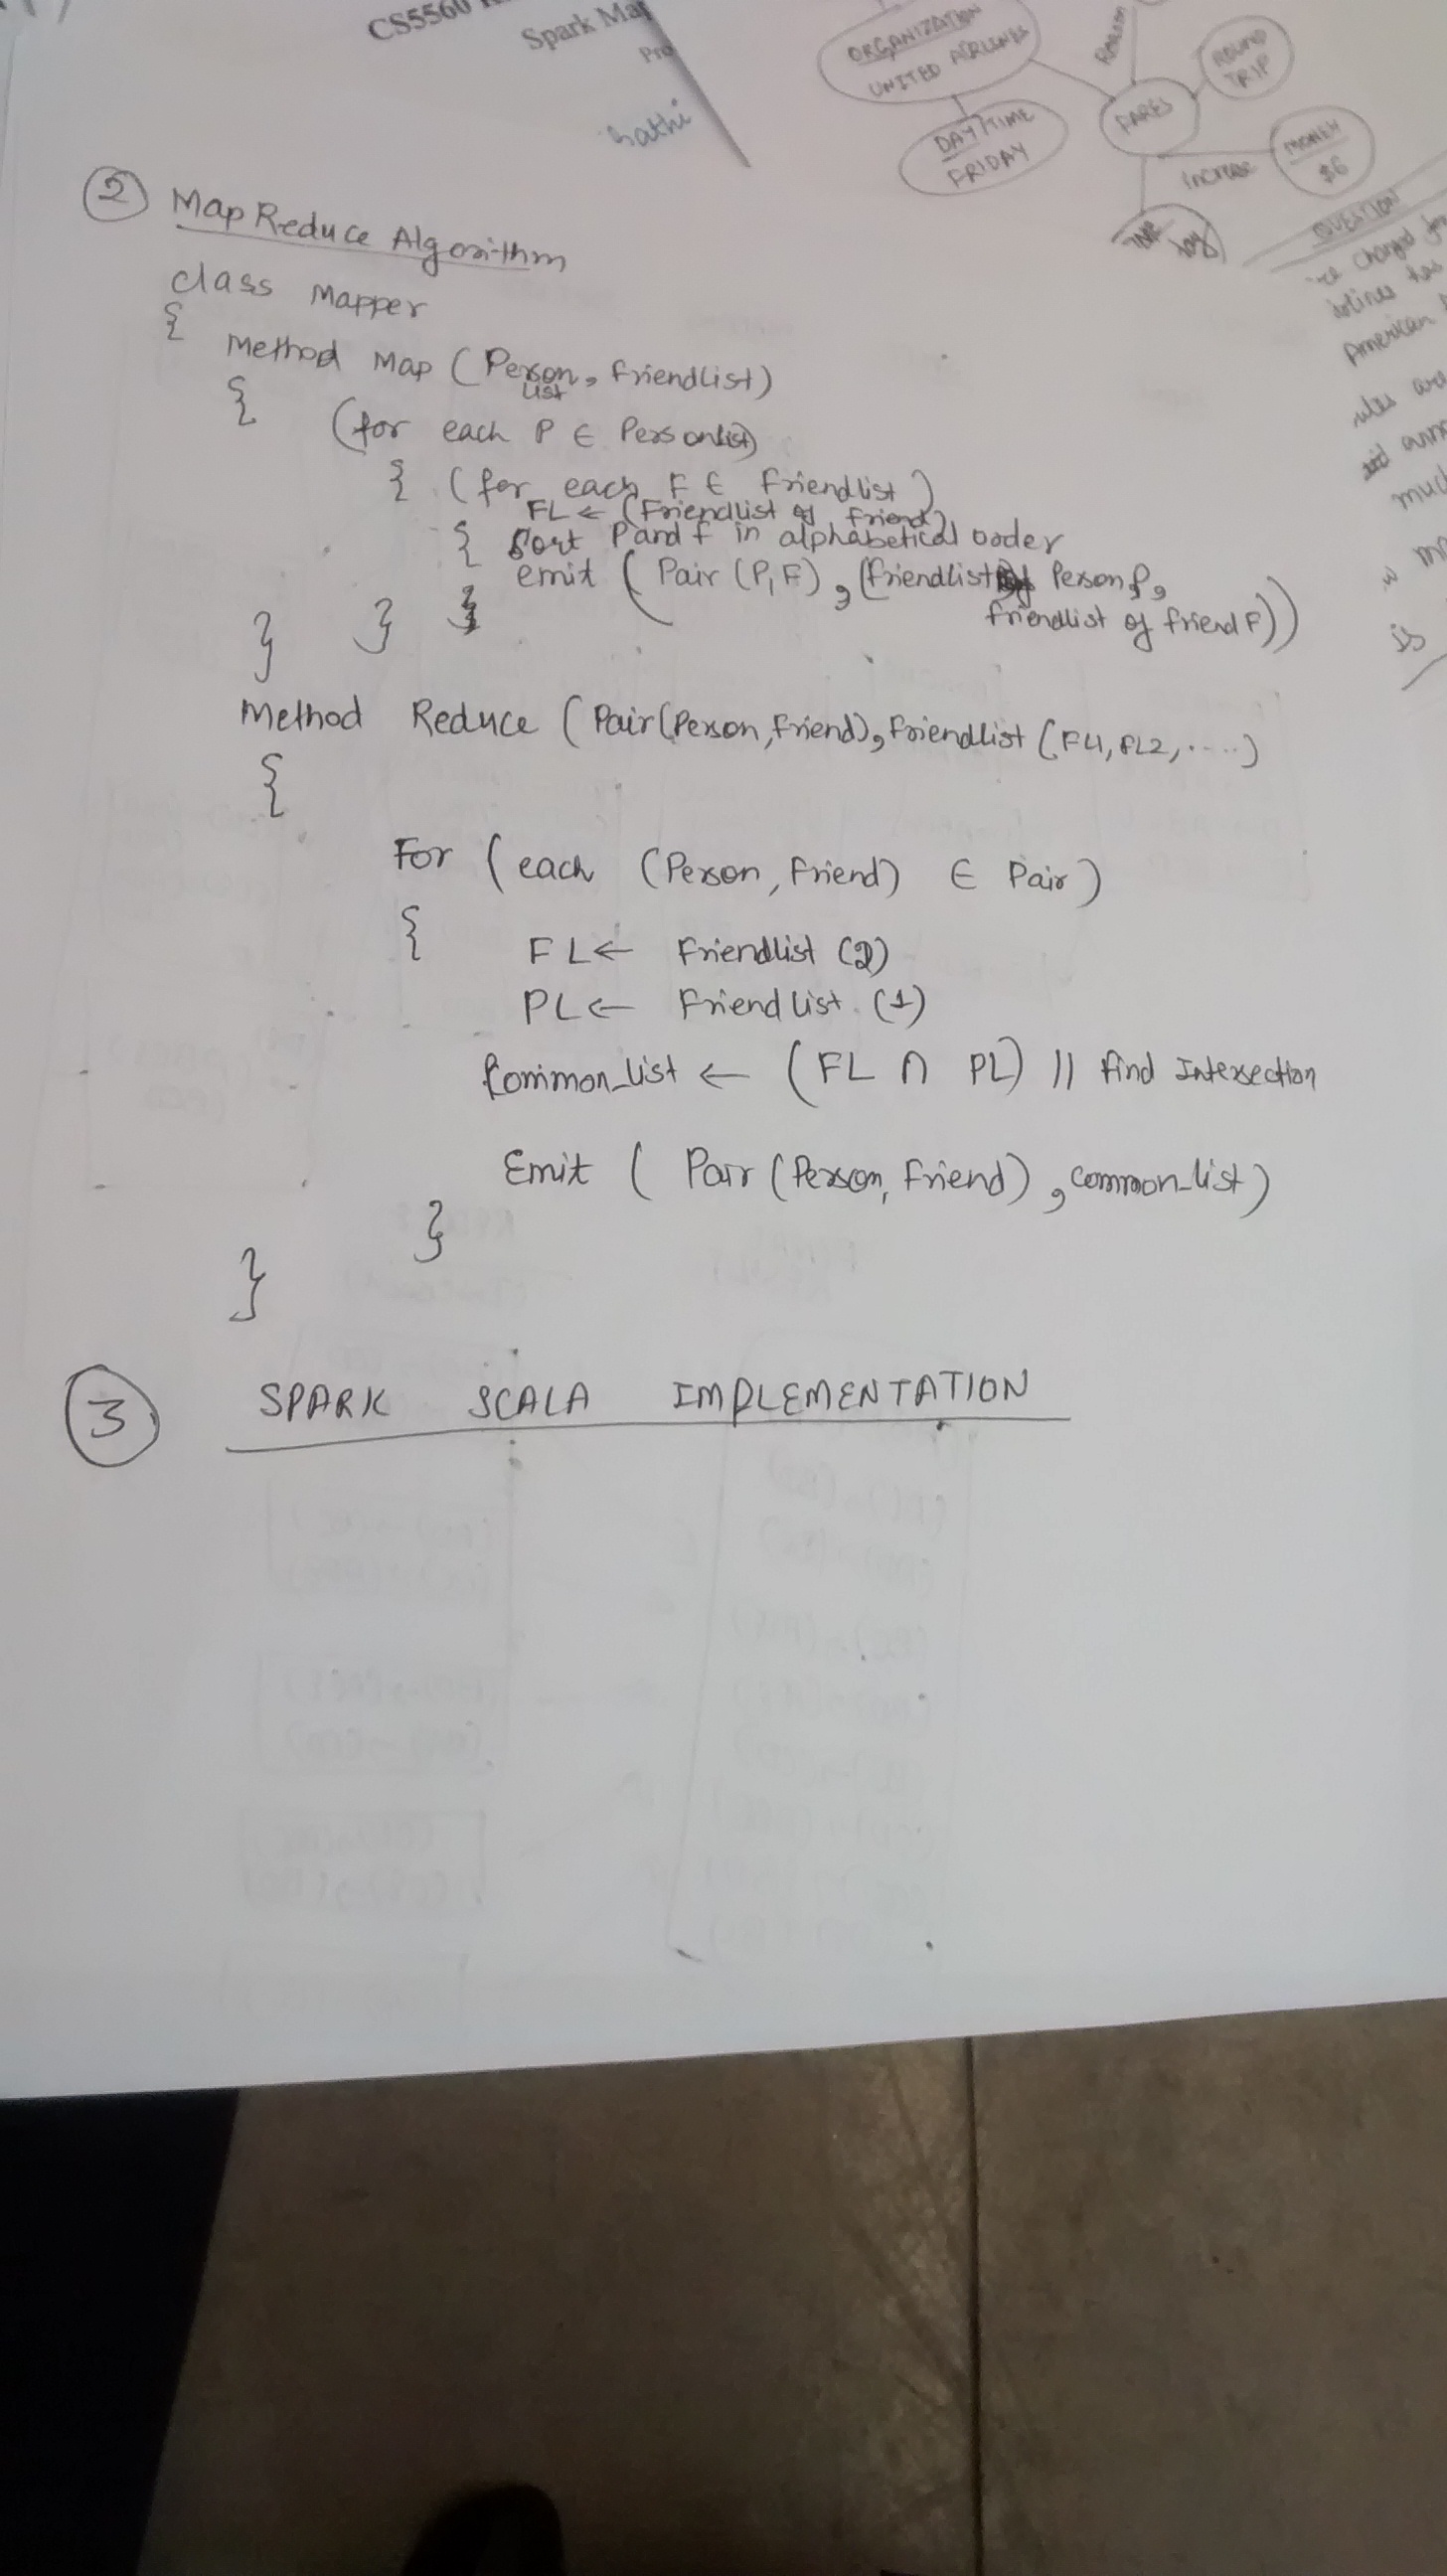 CS5560
Spark Map
Pro
ORGANIZATION
UNITED AIRLINES
DAY/TIME
FRIDAY
FARES
REASON
ROUND
TRIP
Increase
MONEY
$6
QUESTION
American
is
② MapReduce Algorithm
class Mapper
{
Method Map (Person, friendList)
List
{ (for each P ∈ Personlist)
{ (for each F ∈ Friendlist)
FL ← (Friendlist of friend)
{ Sort P and f in alphabetical order
emit ( Pair (P, F), (friendlist of Person P,
friendlist of friend F))
} } }
Method Reduce (Pair (Person, friend), friendlist (FL1, FL2, .....)
{
For (each (Person, Friend) ∈ Pair)
{ FL ← Friendlist (2)
PL ← Friendlist. (1)
Common_list ← (FL ∩ PL) // find Intersection
Emit ( Pair (Person, friend), common_list)
}
}
③ SPARK SCALA IMPLEMENTATION